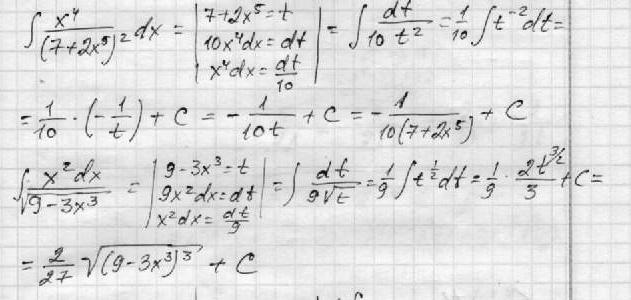 ∫ x⁴/(7+2x⁵)² dx = | 7+2x⁵=t ; 10x⁴dx=dt ; x⁴dx=dt/10 | = ∫ dt/(10 t²) = 1/10 ∫ t⁻² dt =
= 1/10 · (-1/t) + C = - 1/(10t) + C = - 1/(10(7+2x⁵)) + C
∫ x²dx/√(9-3x³) = | 9-3x³=t ; 9x²dx=dt ; x²dx=dt/9 | = ∫ dt/(9√t) = 1/9 ∫ t^(1/2) dt = 1/9 · 2t^(3/2)/3 + C =
= 2/27 √((9-3x³)³) + C